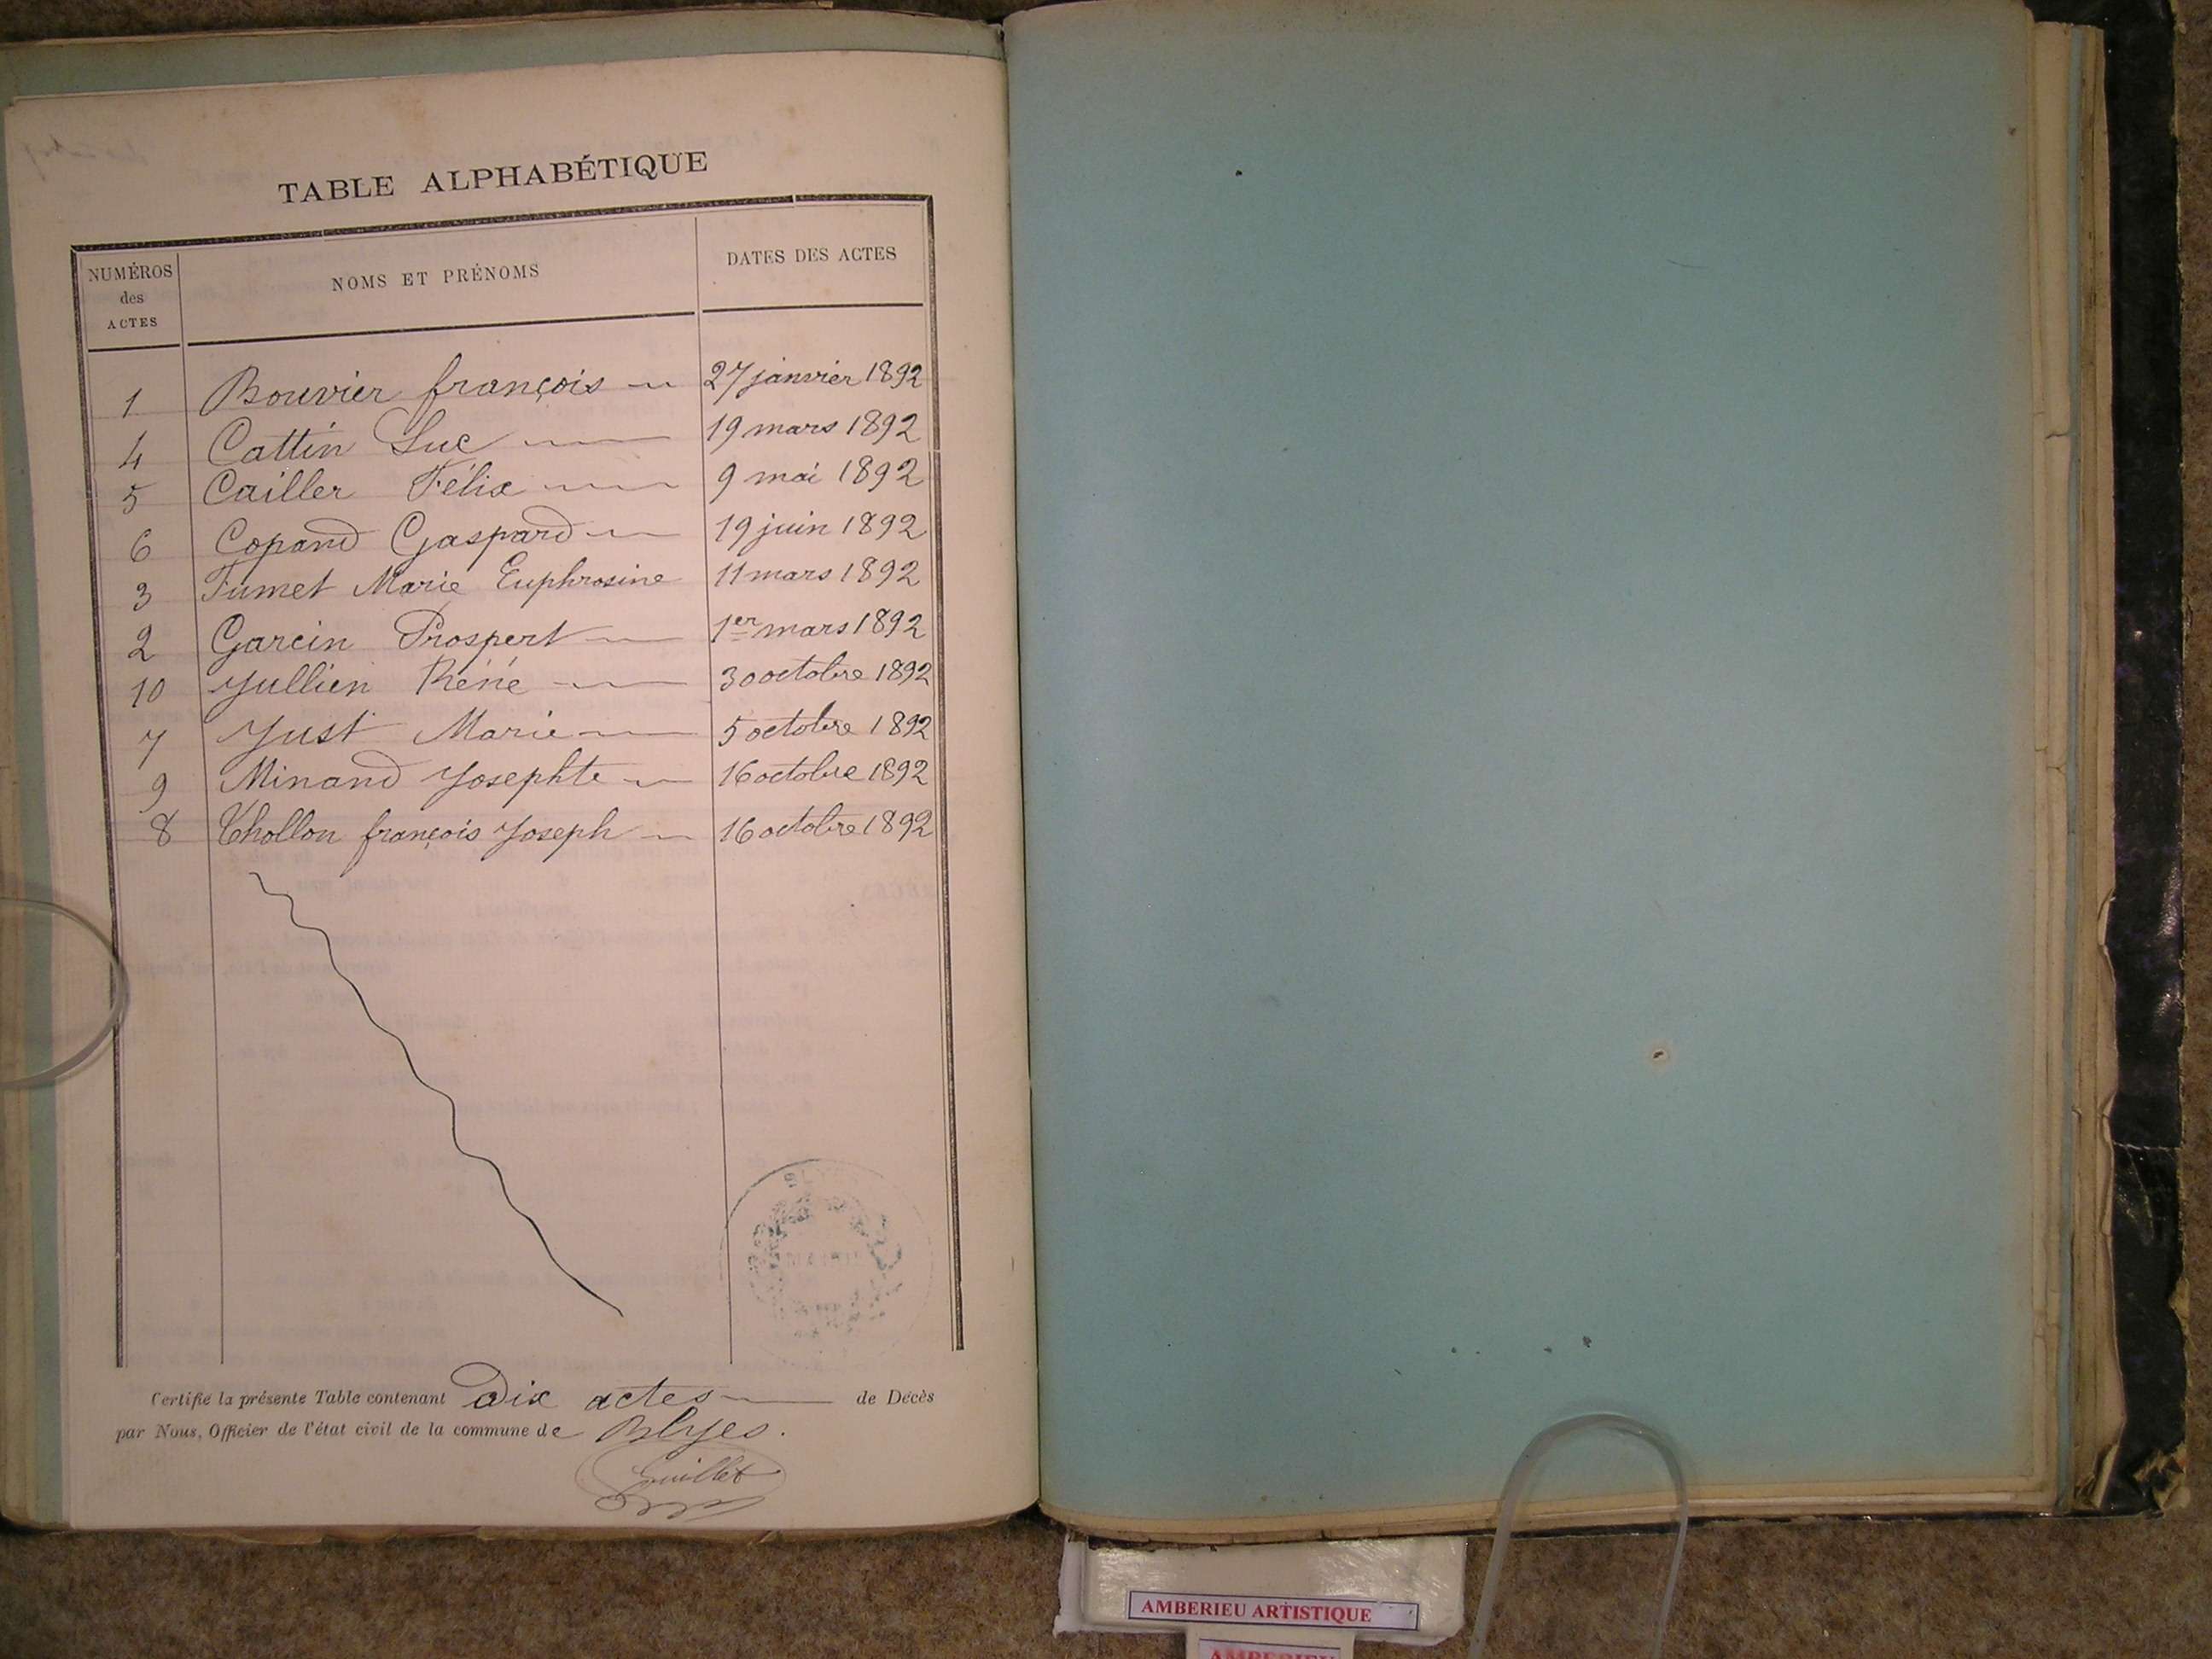 TABLE ALPHABÉTIQUE
NUMÉROS des ACTES NOMS ET PRÉNOMS DATES DES ACTES
1 Bouvier françois 27 janvier 1892
4 Cattin Luc 19 mars 1892
5 Cailler Félix 9 mai 1892
6 Copand Gaspard 19 juin 1892
3 Fumet Marie Euphrosine 11 mars 1892
2 Garcin Prospert 1er mars 1892
10 Jullien Réné 30 octobre 1892
7 Just Marie 5 octobre 1892
9 Minand Josephte 16 octobre 1892
8 Chollon françois Joseph 16 octobre 1892
Certifié la présente Table contenant Dix actes de Décès
par Nous, Officier de l'état civil de la commune de Blyes.
Guillet
AMBERIEU ARTISTIQUE
AMBERIEU